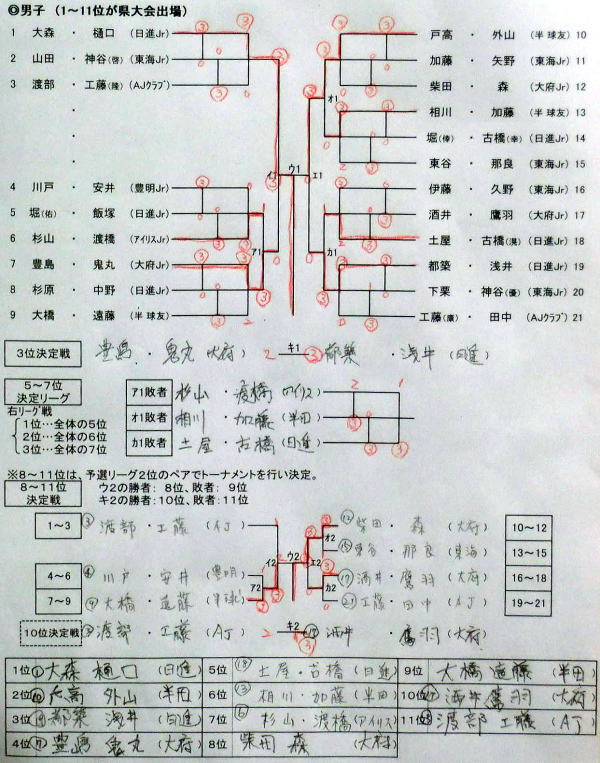 ◎男子 （1～11位が県大会出場）
1 大森 ・ 樋口 （日進Jr）
2 山田 ・ 神谷(啓) （東海Jr）
3 渡部 ・ 工藤(隆) （AJクラブ）
4 川戸 ・ 安井 （豊明Jr）
5 堀(佑) ・ 飯塚 （日進Jr）
6 杉山 ・ 渡橋 （アイリスJr）
7 豊島 ・ 鬼丸 （大府Jr）
8 杉原 ・ 中野 （日進Jr）
9 大橋 ・ 遠藤 （半 球友）
戸高 ・ 外山 （半 球友） 10
加藤 ・ 矢野 （東海Jr） 11
柴田 ・ 森 （大府Jr） 12
相川 ・ 加藤 （半 球友） 13
堀(倖) ・ 古橋(幸) （日進Jr） 14
東谷 ・ 那良 （東海Jr） 15
伊藤 ・ 久野 （東海Jr） 16
酒井 ・ 鷹羽 （大府Jr） 17
土屋 ・ 古橋(滉) （日進Jr） 18
都築 ・ 浅井 （日進Jr） 19
下栗 ・ 神谷(優) （東海Jr） 20
工藤(康) ・ 田中 （AJクラブ） 21
イ1 ウ1 エ1 オ1
ア1 カ1
3位決定戦 豊島 ・ 鬼丸 （大府） 2 キ1 ③ 都築 ・ 浅井 （日進）
5～7位
決定リーグ
右リーグ戦
1位…全体の5位
2位…全体の6位
3位…全体の7位
ア1敗者 杉山 ・ 渡橋 （アイリス）
オ1敗者 相川 ・ 加藤 （半田）
カ1敗者 土屋 ・ 古橋 （日進）
※8～11位は、予選リーグ2位のペアでトーナメントを行い決定。
8～11位
決定戦
ウ2の勝者： 8位、敗者： 9位
キ2の勝者：10位、敗者：11位
1～3 ③ 渡部 ・ 工藤 （AJ）
4～6 ④ 川戸 ・ 安井 （豊明）
7～9 ⑨ 大橋 ・ 遠藤 （半球）
⑫ 柴田 ・ 森 （大府） 10～12
⑮ 東谷 ・ 那良 （東海） 13～15
⑰ 酒井 ・ 鷹羽 （大府） 16～18
㉑ 工藤 ・ 田中 （AJ） 19～21
ア2 イ2 ウ2 エ2 オ2 カ2
10位決定戦 ③ 渡部 ・ 工藤 （AJ） 2 キ2 ③ ⑰ 酒井 ・ 鷹羽 （大府）
1位 ① 大森 樋口 （日進） 5位 ⑱ 土屋・古橋（日進） 9位 大橋 遠藤 （半田）
2位 ⑩ 戸高 外山 （半田） 6位 ⑬ 相川・加藤（半田） 10位 ⑰ 酒井 鷹羽 （大府）
3位 ⑲ 都築 浅井 （日進） 7位 ⑥ 杉山・渡橋（アイリス） 11位 ③ 渡部 工藤 （AJ）
4位 ⑦ 豊島 鬼丸 （大府） 8位 柴田 森 （大府）